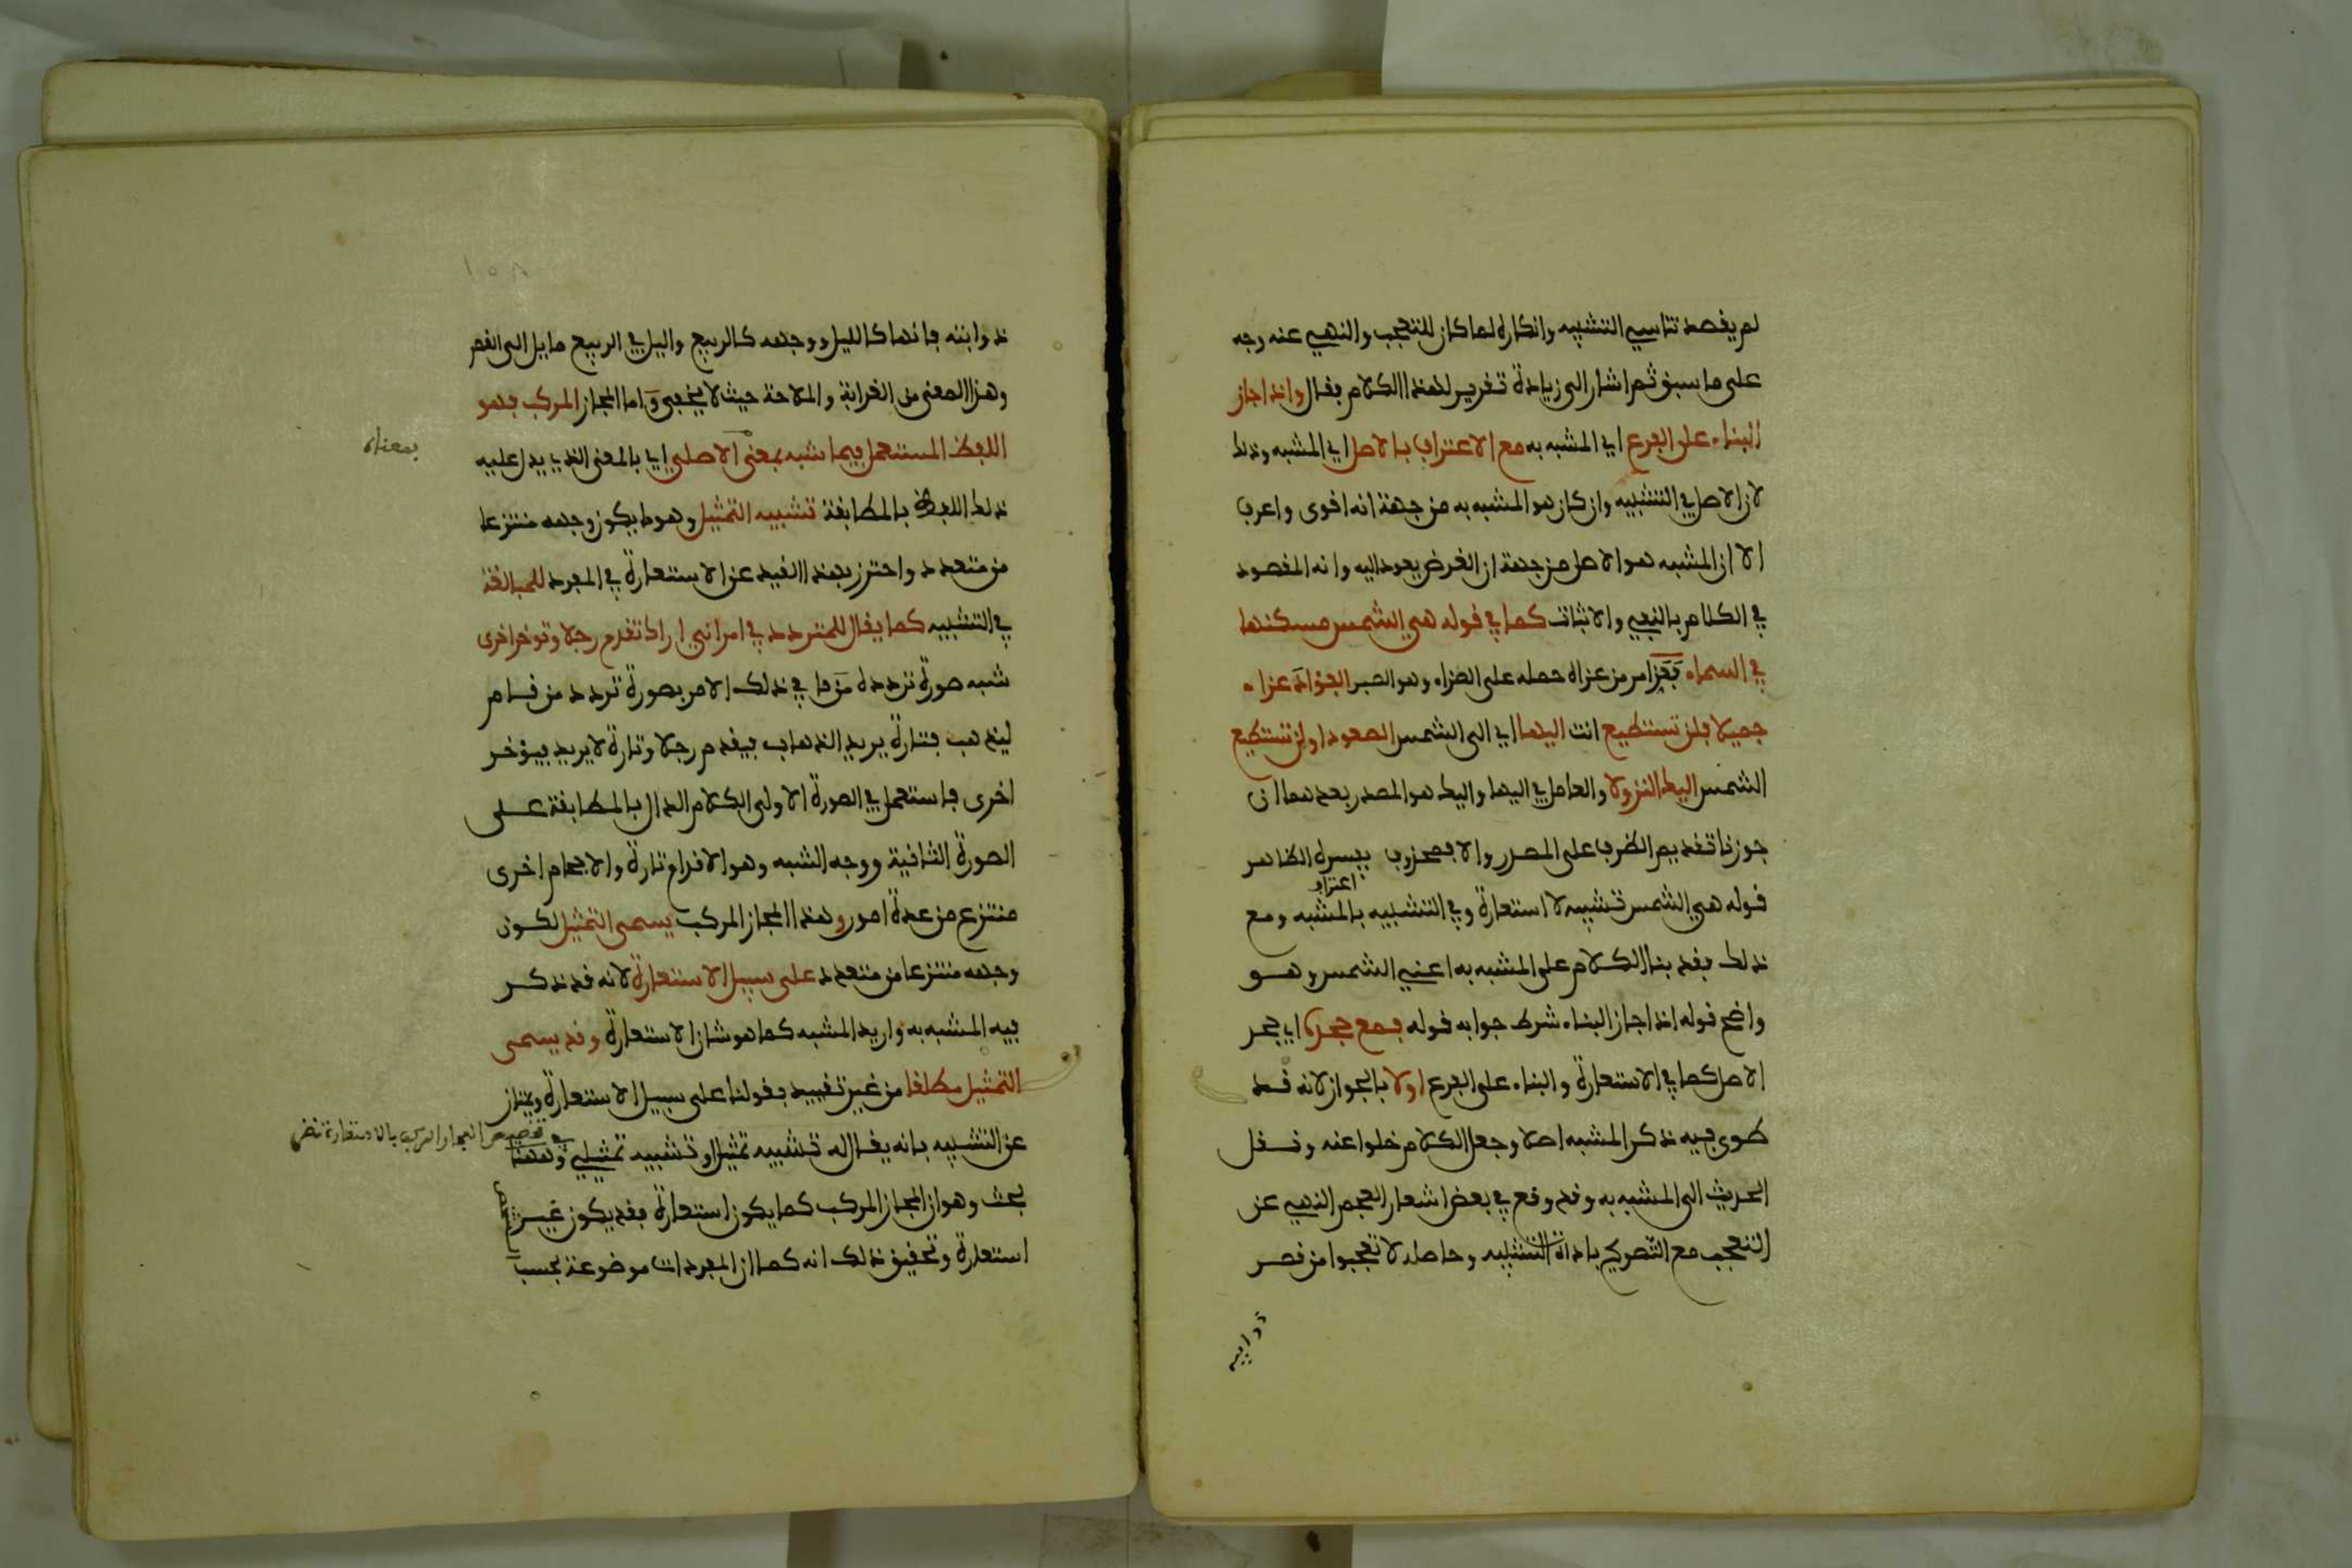 لم يقصد تناسي التشبيه وانكاره لما كان للتعجب والنهي عنه وجه
على ما سبق ثم اشار الى زيادة تقرير لهذا الكلام بقال واذا جاز
البناء على الفرع اي المشبه به مع الاعتراف بالاصل اي المشبه وذلك
لان الاصل في التشبيه وان كان هو المشبه به من جهة انه اقوى واعرف
الا ان المشبه هو الاصل من جهة ان الغرض يعود اليه وانه المقصود
في الكلام بالنفي والاثبات كما في قوله هي الشمس مسكنها
في السماء فعز امر من عزاه حمله على العزاء وهو الصبر الفؤاد عزاء
جميلا فلن تستطيع انت اليها اي الى الشمس الصعود اولن تستطيع
الشمس اليك النزولا والعامل في اليها واليك هو المصدر بعدهما ان
جوزنا تقديم الظرف على المصدر والا فمحذوف يفسره الظاهر
فقوله هي الشمس تشبيه لا استعارة وفي التشبيه اعتراف بالمشبه ومع
ذلك فقد بنا الكلام على المشبه به اعني الشمس وهو
واضح فقوله اذا جاز البناء شرط جوابه قوله فمع جحده اي جحد
الاصل كما في الاستعارة والبناء على الفرع اولا بالجواز لانه قد
طوى فيه ذكر المشبه اصلا وجعل الكلام خلوا عنه ونقل
الحديث الى المشبه به وقد وقع في بعض اشعار العجم النهي عن
التعجب مع التصريح باداة التشبيه وحاصله لا تعجبوا من قصر
ذوايبه
ذوابته فانها كالليل ووجهه كالربيع والليل في الربيع مايل الى القصر
وهذا المعنى من الغرابة والملاحة حيث لا يخفى واما المجاز المركب فهو
اللفظ المستعمل فيما شبه بمعنى الاصلي اي بالمعنى الذي يدل عليه
بمعناه
ذلك اللفظ بالمطابقة تشبيه التمثيل وهو ما يكون وجهه منتزعا
من متعدد واحترز بهذا القيد عن الاستعارة في المفرد للمبالغة
في التشبيه كما يقال للمتردد في امر اني اراك تقدم رجلا وتوخر اخرى
شبه صورة تردده في ذلك الامر بصورة تردد من قام
ليذهب فتارة يريد الذهاب فيقدم رجلا وتارة لا يريد فيؤخر
اخرى فاستعمل في الصورة الاولى الكلام الدال بالمطابقة على
الصورة الثانية ووجه الشبه وهو الاقدام تارة والاحجام اخرى
منتزع من عدة امور وهذا المجاز المركب يسمى التمثيل لكون
وجهه منتزعا من متعدد على سبيل الاستعارة لانه قد ذكر
فيه المشبه به واريد المشبه كما هو شان الاستعارة وقد يسمى
التمثيل مطلقا من غير تقييد بقولنا على سبيل الاستعارة ويمتاز
عن التشبيه بانه يقال له تشبيه تمثيل او تشبيه تمثيلي وههنا
في تخصيص المجاز المركب بالاستعارة نظر
بحث وهو ان المجاز المركب كما يكون استعارة فقد يكون غير
استعارة وتحقيق ذلك انه كما ان المفردات موضوعة بحسب